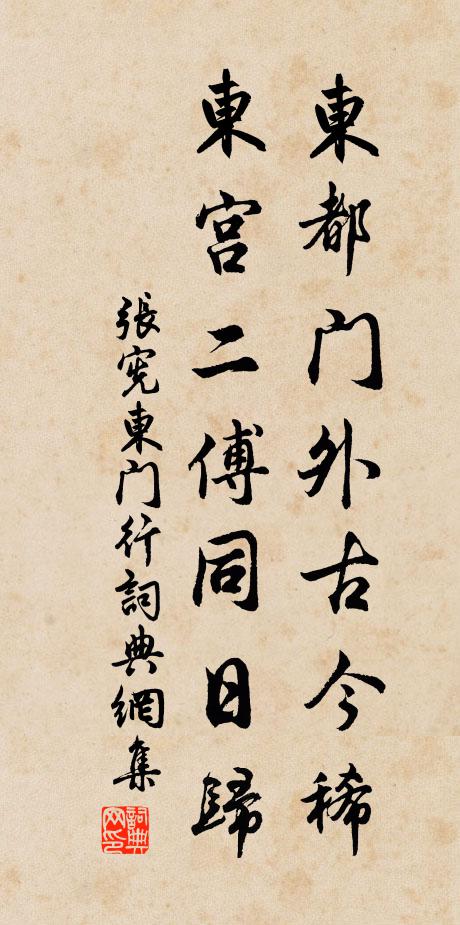 東都门外古今稀
東宮二傅同日歸
張憲東门行詞典網集
詞典網印